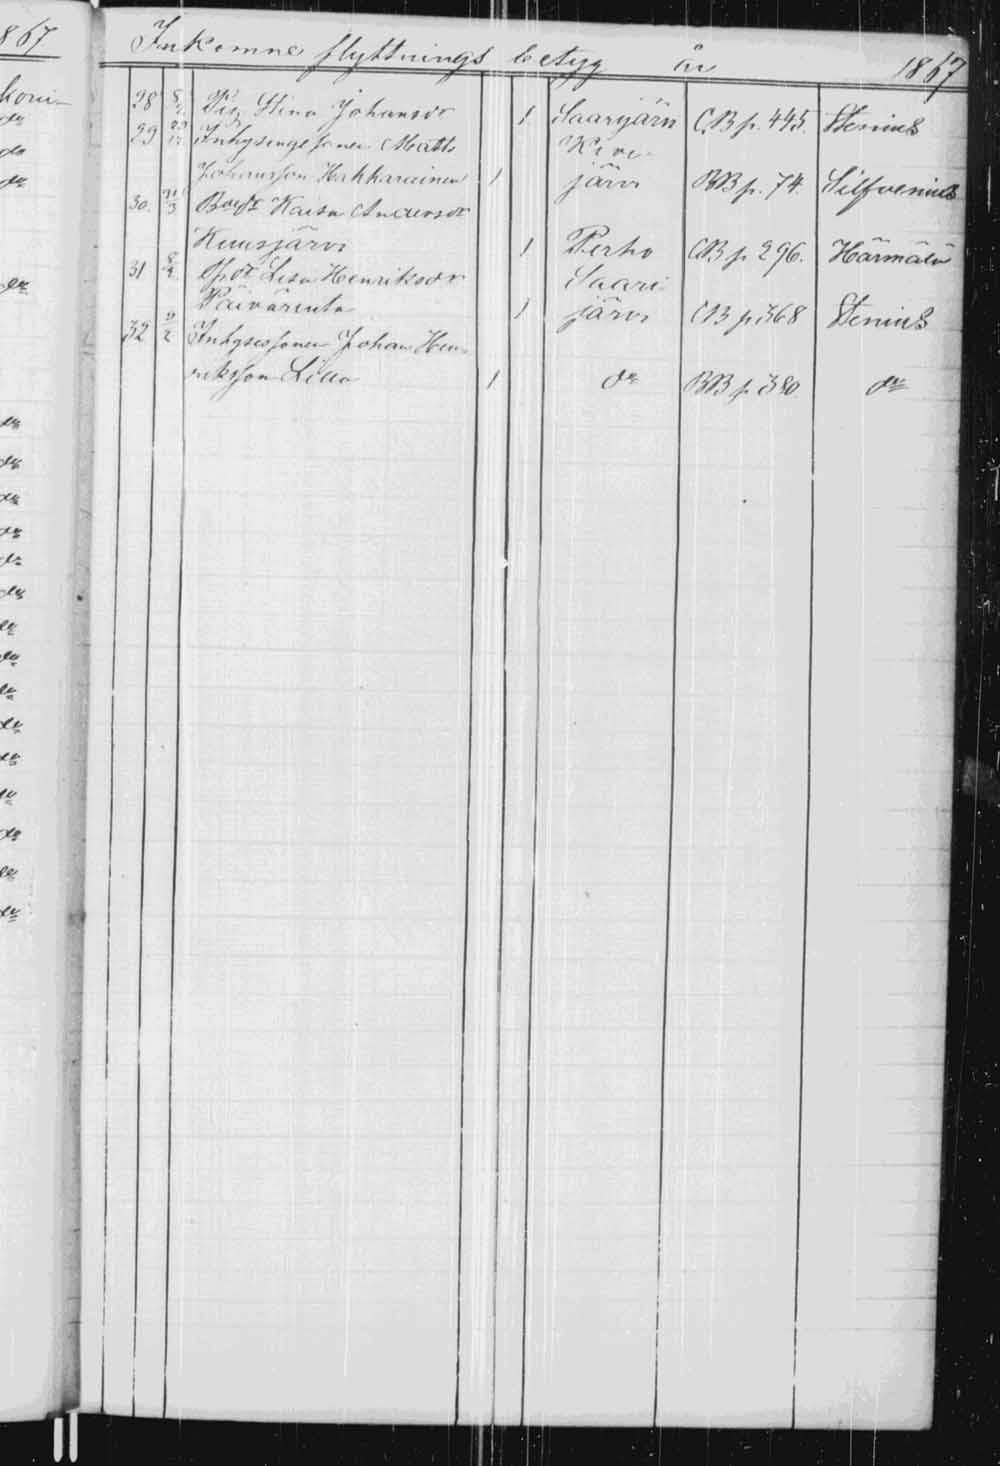 867
Inkomne flyttnings betyg år 1867
28 Pig Stina Johansdr 1 Saarijärvi CB p. 445. Stenius
29 Inhysingesonen Matts Kivi-
Johansson Hakkarainen 1 järvi BB p. 74. Silfvenius
30. 21/3 Bdr Kaisa Andersdr
Kuusjärvi 1 Perho CB p 296. Härmälä
31 Lisa Henriksdr Saari
Päivärinta 1 järvi CB p 368 Stenius
32 Inhysessonen Johan Hen-
riksson Lilla 1 do BB p 380 do
do
do
do
do
do
do
do
do
do
do
do
do
do
do
do
do
do
do
do